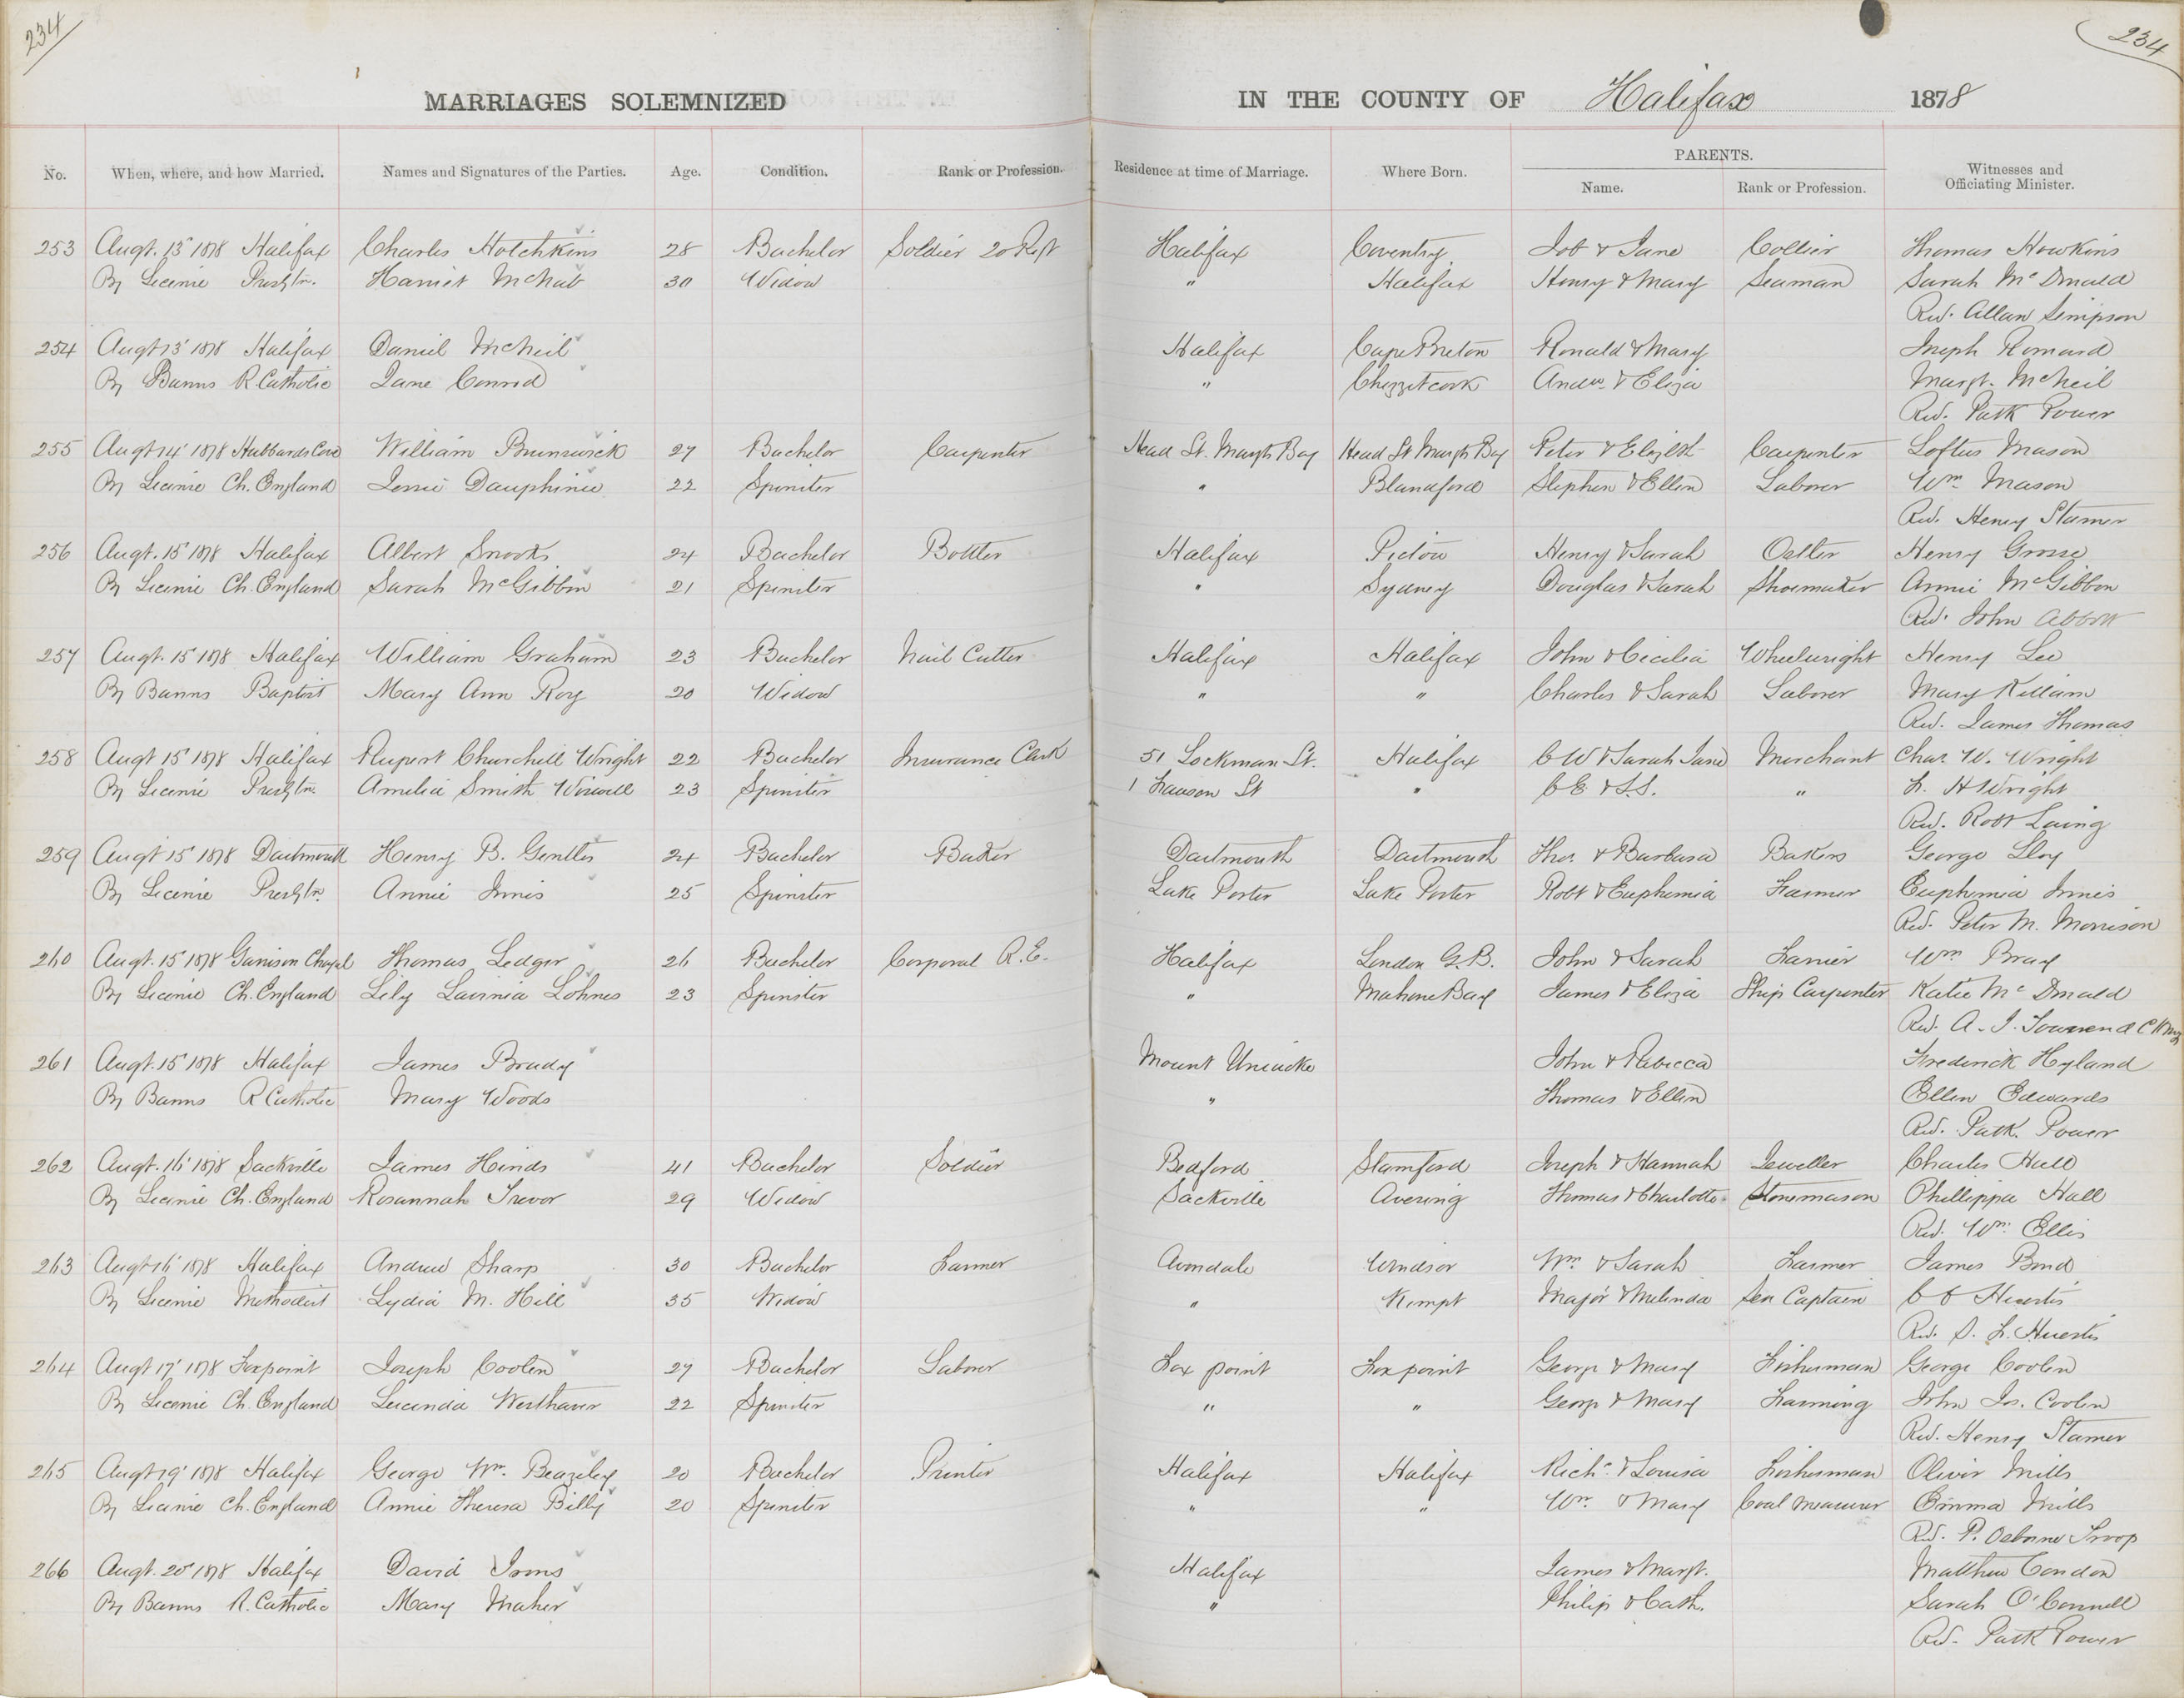 234
234
MARRIAGES SOLEMNIZED IN THE COUNTY OF Halifax 1878
No. When, where, and how Married. Names and Signatures of the Parties. Age. Condition. Rank or Profession. Residence at time of Marriage. Where Born. PARENTS. Name. Rank or Profession. Witnesses and Officiating Minister.
253 Augt. 13 1878 Halifax Charles Hotchkins 28 Bachelor Soldier 20 Regt Halifax Coventry Job & Jane Collier Thomas Howkins
By License Presbtn. Harriet McNab 30 Widow " Halifax Henry & Mary Seaman Sarah McDonald
Rev. Allan Simpson
254 Augt 13 1878 Halifax Daniel McNeil Halifax Cape Breton Ronald & Mary Joseph Romard
By Banns R Catholic Jane Conrod " Chezzetcook Andw. & Eliza Margt. McNeil
Rev. Patk Power
255 Augt 14 1878 Hubbards Cove William Brunswick 27 Bachelor Carpenter Head St. Margts Bay Head St Margts Bay Peter & Elizbt Carpenter Loftus Mason
By License Ch. England Jessie Dauphinie 22 Spinster " Blandford Stephen & Ellen Laborer Wm. Mason
Rev. Henry Stamer
256 Augt. 15 1878 Halifax Albert Snooks 24 Bachelor Bottler Halifax Pictou Henry & Sarah Ostler Henry Grose
By License Ch. England Sarah McGibbon 21 Spinster " Sydney Douglas & Sarah Shoemaker Annie McGibbon
Rev. John Abbott
257 Augt. 15 1878 Halifax William Graham 23 Bachelor Nail Cutter Halifax Halifax John & Cecilia Wheelwright Henry Lee
By Banns Baptist Mary Ann Roy 20 Widow " " Charles & Sarah Laborer Mary Killam
Rev. James Thomas
258 Augt 15 1878 Halifax Rupert Churchill Wright 22 Bachelor Insurance Clerk 51 Lockman St. Halifax C W & Sarah Jane Merchant Chas. W. Wright
By License Presbtn. Amelia Smith Wiswell 23 Spinster 1 Lawson St " C E & S.S. " F. H Wright
Rev. Robt Laing
259 Augt 15 1878 Dartmouth Henry B. Gentles 24 Bachelor Baker Dartmouth Dartmouth Thos. & Barbara Bakers George Lloy
By License Presbtn. Annie Innis 25 Spinster Lake Porter Lake Porter Robt & Euphemia Farmer Euphemia Innis
Rev. Peter M. Morrison
260 Augt. 15 1878 Garrison Chapel Thomas Ledger 26 Bachelor Corporal R.E. Halifax London G.B. John & Sarah Farrier Wm. Bray
By License Ch. England Lily Lavinia Lohnes 23 Spinster " Mahone Bay James & Eliza Ship Carpenter Katie McDonald
Rev. A. J. Townend
261 Augt. 15 1878 Halifax James Brady Mount Uniacke John & Rebecca Frederick Hyland
By Banns R Catholic Mary Woods " Thomas & Ellen Ellen Edwards
Rev. Patk. Power
262 Augt. 16 1878 Sackville James Hinds 41 Bachelor Soldier Bedford Stamford Joseph & Hannah Jeweller Charles Hall
By License Ch. England Rosannah Trevor 29 Widow Sackville Avering Thomas & Charlotte Stonemason Phillippa Hall
Rev. Wm. Ellis
263 Augt 16 1878 Halifax Andrew Sharp 30 Bachelor Farmer Avondale Windsor Wm. & Sarah Farmer James Bond
By License Methodist Lydia M. Hill 35 Widow " Kempt Major & Melinda Sea Captain Huestis
Rev. S. F. Huestis
264 Augt 17 1878 Foxpoint Joseph Coolen 27 Bachelor Laborer Fox point Fox point George & Mary Fisherman George Coolen
By License Ch. England Lucinda Westhaver 22 Spinster " " George & Mary Farming John Jos. Coolen
Rev. Henry Stamer
265 Augt 19 1878 Halifax George Wm. Beazley 20 Bachelor Printer Halifax Halifax Richd. & Louisa Fisherman Oliver Mills
By License Ch. England Annie Theresa Billy 20 Spinster " " Wm. & Mary Coal Measurer Emma Mills
Rev. P. Osborne Troop
266 Augt. 20 1878 Halifax David Irons Halifax James & Margt. Matthew Condon
By Banns R. Catholic Mary Maher " Philip & Cath. Sarah O'Connell
Rev. Patk Power